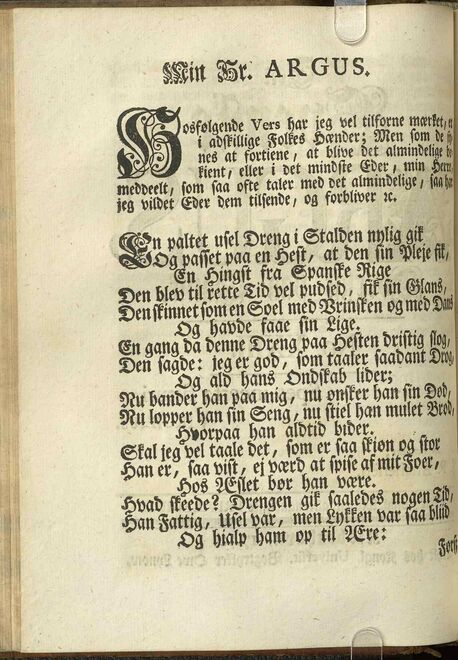 Min Hr. ARGUS.
Hosfølgende Vers har jeg vel tilforne mærket,
i adskillige Folkes Hænder; Men som de
nes at fortiene, at blive det almindelige
kient, eller i det mindste Eder, min Herre,
meddeelt, som saa ofte taler med det almindelige, saa har
jeg vildet Eder dem tilsende, og forbliver ꝛc.
En paltet usel Dreng i Stalden nylig gik
Og passet paa en Hest, at den sin Pleje fik,
En Hingst fra Spanske Rige
Den blev til rette Tid vel pudsed, fik sin Glans,
Den skinnet som en Soel med Vrinsken og med Dans
Og havde faae sin Lige.
En gang da denne Dreng paa Hesten dristig slog,
Den sagde: jeg er god, som taaler saadant Drog,
Og ald hans Ondskab lider;
Nu bander han paa mig, nu ønsker han sin Død,
Nu lopper han sin Seng, nu stiel han mulet Brød,
Hvorpaa han aldtid bider.
Skal jeg vel taale det, som er saa skiøn og stor
Han er, saa vist, ej værd at spise af mit Foer,
Hos Æslet bør han være.
Hvad skeede? Drengen gik saaledes nogen Tid,
Han Fattig, Usel var, men Lykken var saa bliid
Og hialp ham op til Ære: